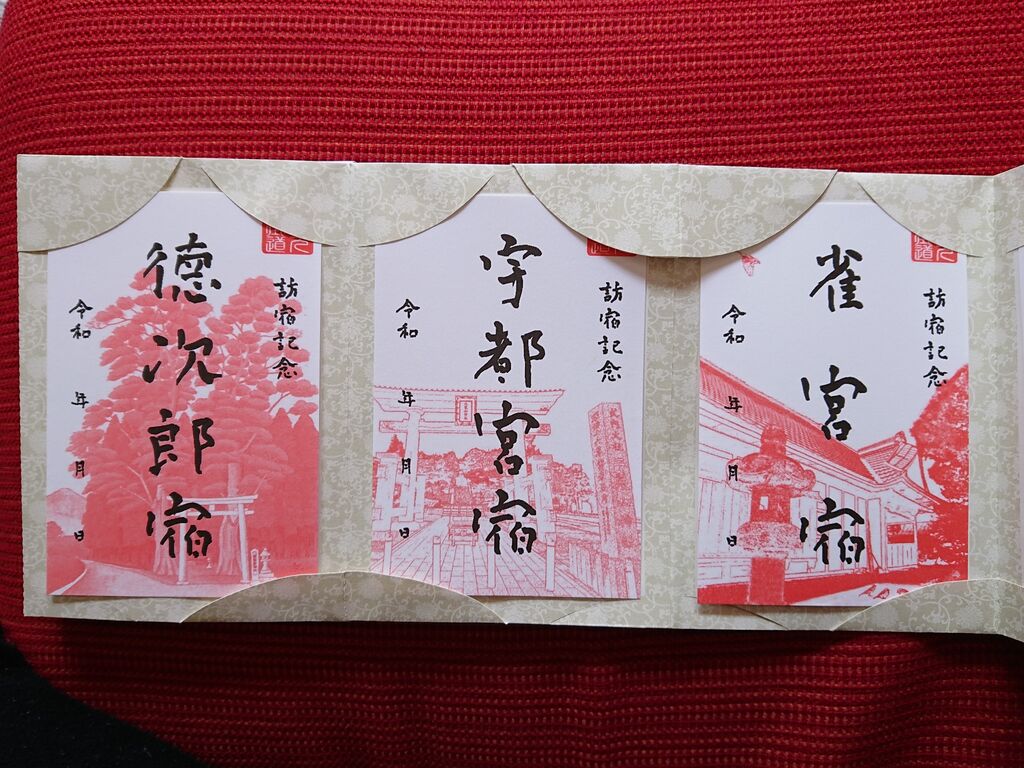 訪宿記念
徳次郎宿
令和 年 月 日
訪宿記念
宇都宮宿
令和 年 月 日
訪宿記念
雀宮宿
令和 年 月 日